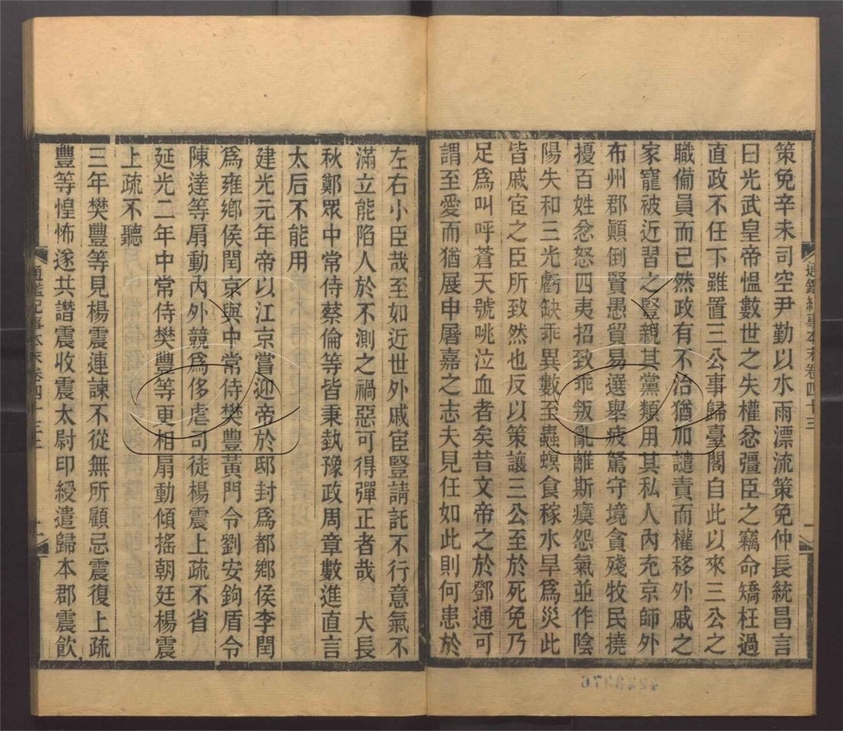 策免辛未司空尹勤以水雨漂流策免仲長統昌言
曰光武皇帝愠數世之失權忿彊臣之竊命矯枉過
直政不任下雖置三公事歸臺閣自此以來三公之
職備員而已然政有不治猶加譴責而權移外戚之
家寵被近習之豎親其黨類用其私人內充京師外
布州郡顛倒賢愚貿易選舉疲駑守境貪殘牧民撓
擾百姓忿怒四夷招致乖叛亂離斯瘼怨氣並作陰
陽失和三光虧缺乖異數至蟲螟食稼水旱爲災此
皆戚宦之臣所致然也反以策讓三公至於死免乃
足爲叫呼蒼天號咷泣血者矣昔文帝之於鄧通可
謂至愛而猶展申屠嘉之志夫見任如此則何患於
通鑑紀事本末卷四十三
左右小臣哉至如近世外戚宦豎請託不行意氣不
滿立能陷人於不測之禍惡可得彈正者哉 大長
秋鄭眾中常侍蔡倫等皆秉埶豫政周章數進直言
太后不能用
建光元年帝以江京嘗迎帝於邸封爲都鄉侯李閏
爲雍鄉侯閏京與中常侍樊豐黃門令劉安鉤盾令
陳達等扇動內外競爲侈虐司徒楊震上疏不省
延光二年中常侍樊豐等更相扇動傾搖朝廷楊震
上疏不聽
三年樊豐等見楊震連諫不從無所顧忌震復上疏
豐等惶怖遂共譖震收震太尉印綬遣歸本郡震飲
通鑑紀事本末卷四十三